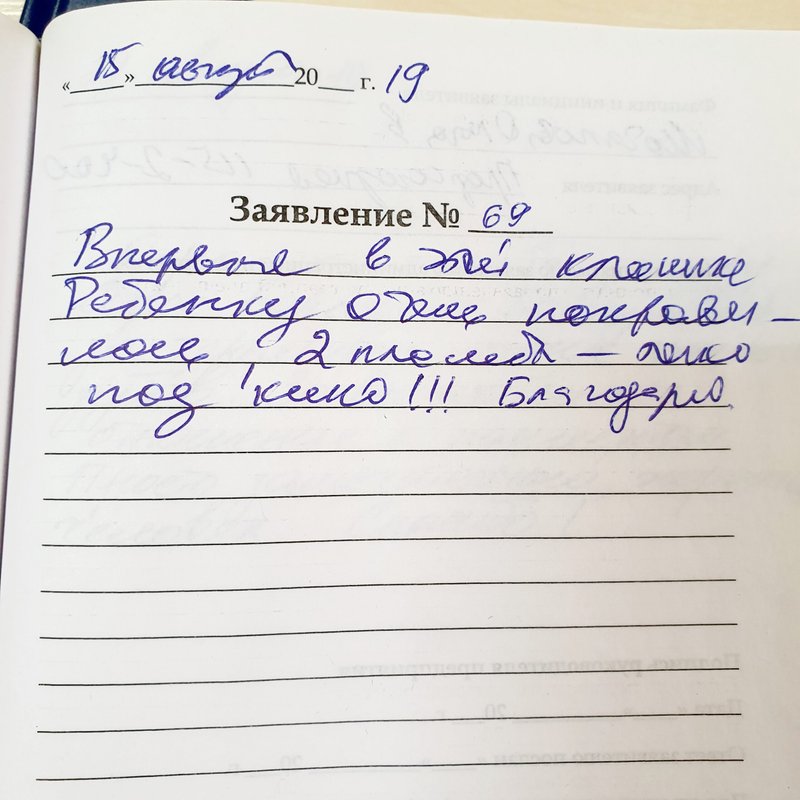 « 15 » август 20__ г. 19
Заявление № 69
Впервые в этой клинике
Ребенку очень понрави-
лось, 2 пломбы – легко
под кино!!! Благодарю